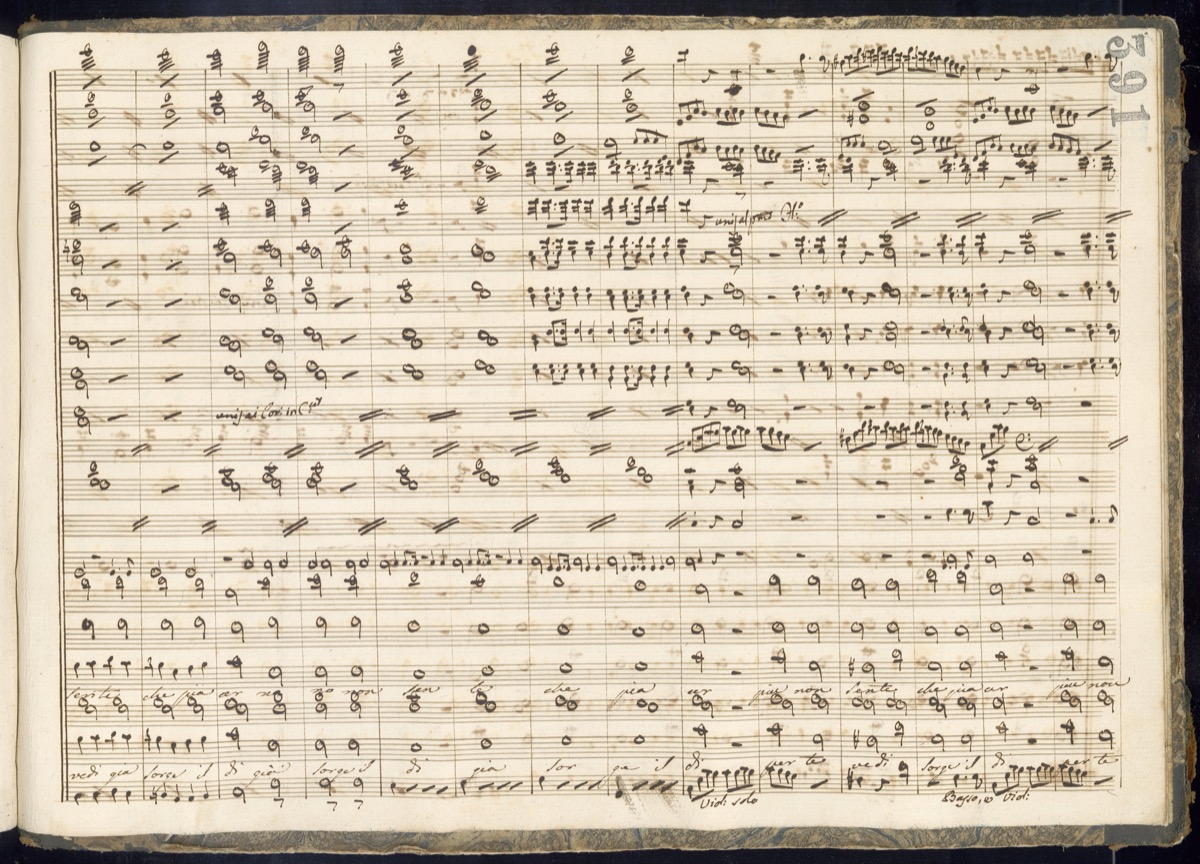 391
unis al primo
unis ai Corni in C
sente che piu ar no no non sen te che piu ar piu non sente che piu ar piu non
vedi gia sorge il di già sorge il di gia sor ge il di per te vedi sorge il di per te
Violi solo
Basso, e Violi